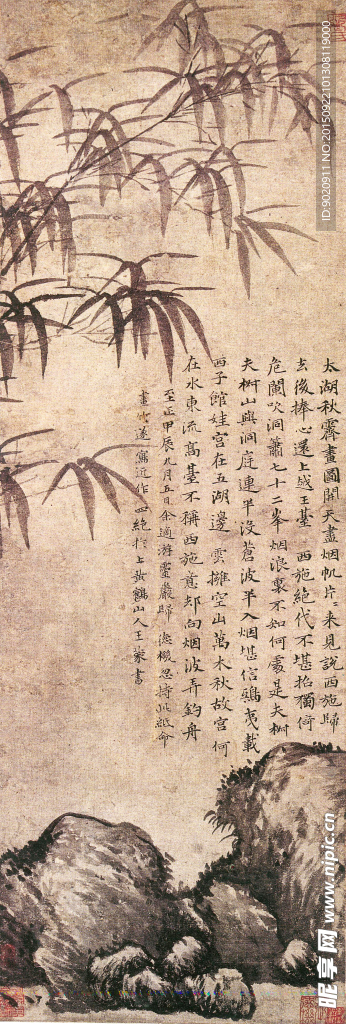 太湖秋霽畫圖開天盡烟帆片〻來見說西施歸
去後捧心還上越王臺 西施絕代不堪招獨倚
危闌吹洞簫七十二峯烟浪裏不知何處是夫椒
夫椒山與洞庭連半沒蒼波半入烟堪信鴟夷載
西子館娃宮在五湖邊 雲擁空山萬木秋故宮何
在水東流高臺不稱西施意却向烟波弄釣舟
至正甲辰九月五日余適游靈巖歸 德機忽持此紙命
畫竹遂寫近作四絕於上黃鶴山人王蒙書
昵享网 www.nipic.cn
ID:9020911 NO:20150922101308119000